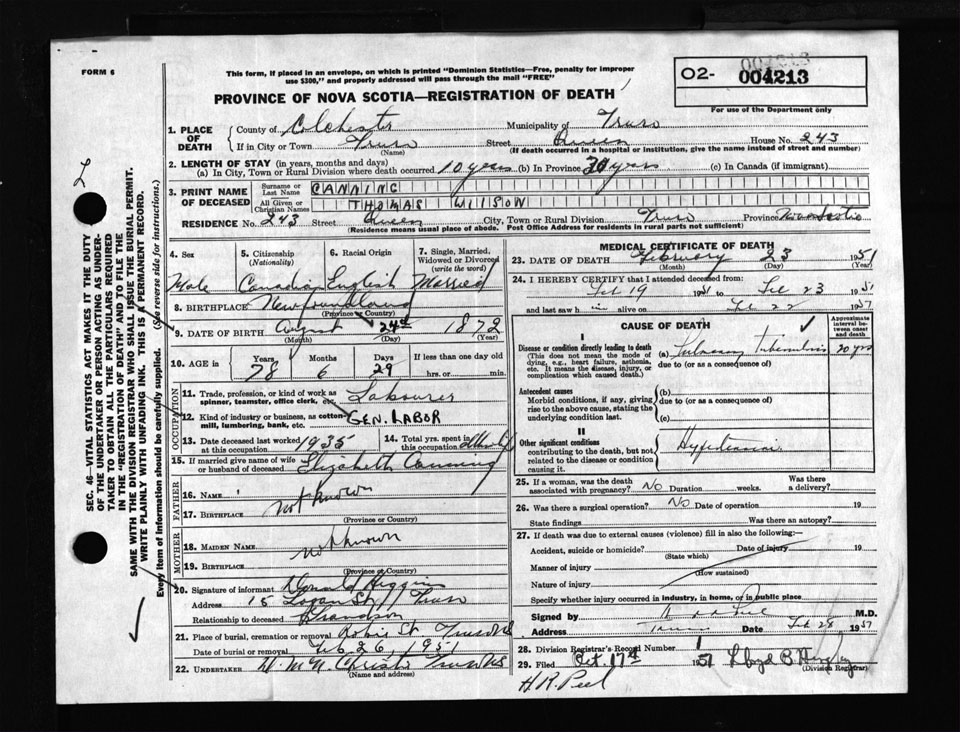 FORM 6
This form, if placed in an envelope, on which is printed "Dominion Statistics—Free, penalty for improper
use $300," and properly addressed will pass through the mail "FREE"
004213
O2- 004213
For use of the Department only
PROVINCE OF NOVA SCOTIA—REGISTRATION OF DEATH
1. PLACE OF DEATH
County of Colchester Municipality of Truro
If in City or Town Truro Street Queen House No. 243
(Name) (If death occurred in a hospital or institution, give the name instead of street and number)
2. LENGTH OF STAY (in years, months and days)
(a) In City, Town or Rural Division where death occurred 10 years (b) In Province 30 years (c) In Canada (if immigrant)
3. PRINT NAME OF DECEASED
Surname or Last Name CANNING
All Given or Christian Names THOMAS WILSON
RESIDENCE No. 243 Street Queen City, Town or Rural Division Truro Province Nova Scotia
(Residence means usual place of abode. Post Office Address for residents in rural parts not sufficient)
4. Sex Male
5. Citizenship (Nationality) Canadian
6. Racial Origin English
7. Single, Married, Widowed or Divorced (write the word) Married
8. BIRTHPLACE Newfoundland
(Province or Country)
9. DATE OF BIRTH August 24th 1872
(Month) (Day) (Year)
10. AGE Years 78 Months 6 Days 29 If less than one day old hrs. or min.
OCCUPATION
11. Trade, profession, or kind of work as spinner, teamster, office clerk, etc. Labourer
12. Kind of industry or business, as cotton-mill, lumbering, bank, etc. GEN. LABOR
13. Date deceased last worked at this occupation 1935
14. Total yrs. spent in this occupation
15. If married give name of wife or husband of deceased Elizabeth Canning
FATHER
16. Name
17. BIRTHPLACE not known
(Province or Country)
MOTHER
18. MAIDEN NAME not known
19. BIRTHPLACE
(Province or Country)
20. Signature of informant Donald Higgins
Address 15 Logan St, Truro
Relationship to deceased Grandson
21. Place of burial, cremation or removal Robie St. Truro NS
Date of burial or removal Feb 26 1951
22. UNDERTAKER Truro NS
(Name and address)
MEDICAL CERTIFICATE OF DEATH
23. DATE OF DEATH February 23 1951
(Month) (Day) (Year)
24. I HEREBY CERTIFY that I attended deceased from
Feb 19 1951 to Feb 23 1951
and last saw h im alive on Feb 22 1951
CAUSE OF DEATH
Approximate interval between onset and death
I
Disease or condition directly leading to death
(This does not mean the mode of dying, e.g., heart failure, asthenia, etc. It means the disease, injury, or complication which caused death.)
(a) Pulmonary tuberculosis 20 yrs
due to (or as a consequence of)
Antecedent causes
Morbid conditions, if any, giving rise to the above cause, stating the underlying condition last.
(b)
due to (or as a consequence of)
(c)
II
Other significant conditions
contributing to the death, but not related to the disease or condition causing it.
Hypertension
25. If a woman, was the death associated with pregnancy? NO Duration weeks. Was there a delivery?
26. Was there a surgical operation? No Date of operation 19
State findings Was there an autopsy?
27. If death was due to external causes (violence) fill in also the following:—
Accident, suicide or homicide? Date of injury 19
(State which)
Manner of injury
(How sustained)
Nature of injury
Specify whether injury occurred in industry, in home, or in public place
Signed by M.D.
Address Truro Date Feb 28 1951
28. Division Registrar's Record Number 1
29. Filed Oct. 17th 1951 Lloyd B
(Division Registrar)
H.R. Peel
SEC. 46—VITAL STATISTICS ACT MAKES IT THE DUTY
OF THE UNDERTAKER OR PERSON ACTING AS UNDER-
TAKER TO OBTAIN ALL THE PARTICULARS REQUIRED
IN THE "REGISTRATION OF DEATH" AND TO FILE THE
SAME WITH THE DIVISION REGISTRAR WHO SHALL ISSUE THE BURIAL PERMIT.
WRITE PLAINLY WITH UNFADING INK. THIS IS A PERMANENT RECORD.
Every item of information should be carefully supplied. (See reverse side for instructions.)